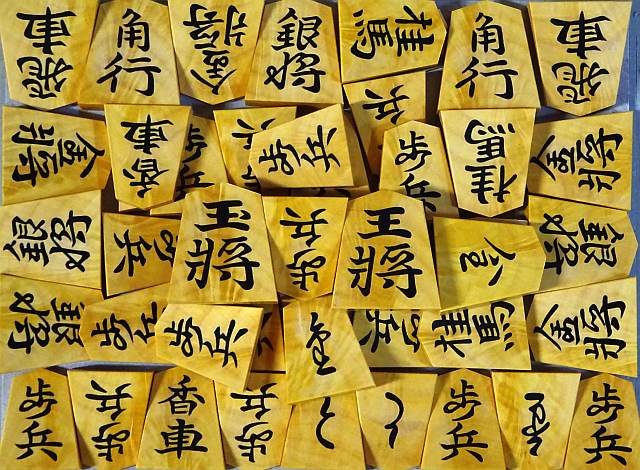 飛車
角行
金将
銀将
桂馬
角行
飛車
金将
香車
歩兵
歩兵
歩兵
桂馬
金将
銀将
歩兵
王將
歩兵
王將
銀将
銀将
歩兵
歩兵
桂馬
金将
歩兵
歩兵
香車
歩兵
と
と
歩兵
歩兵